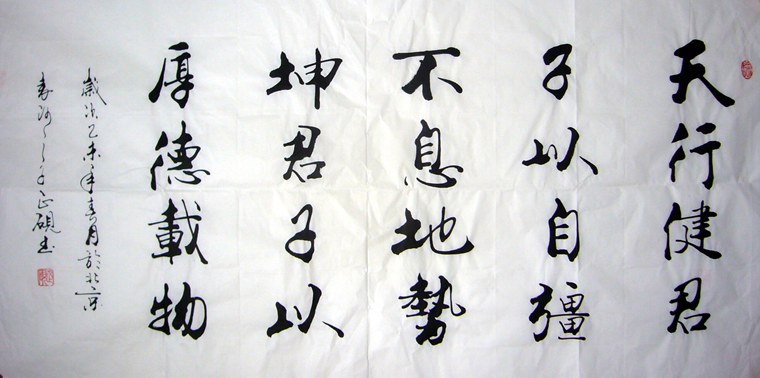 天行健君
子以自彊
不息地勢
坤君子以
厚德載物
歲次乙未年春月於北京
正硯书